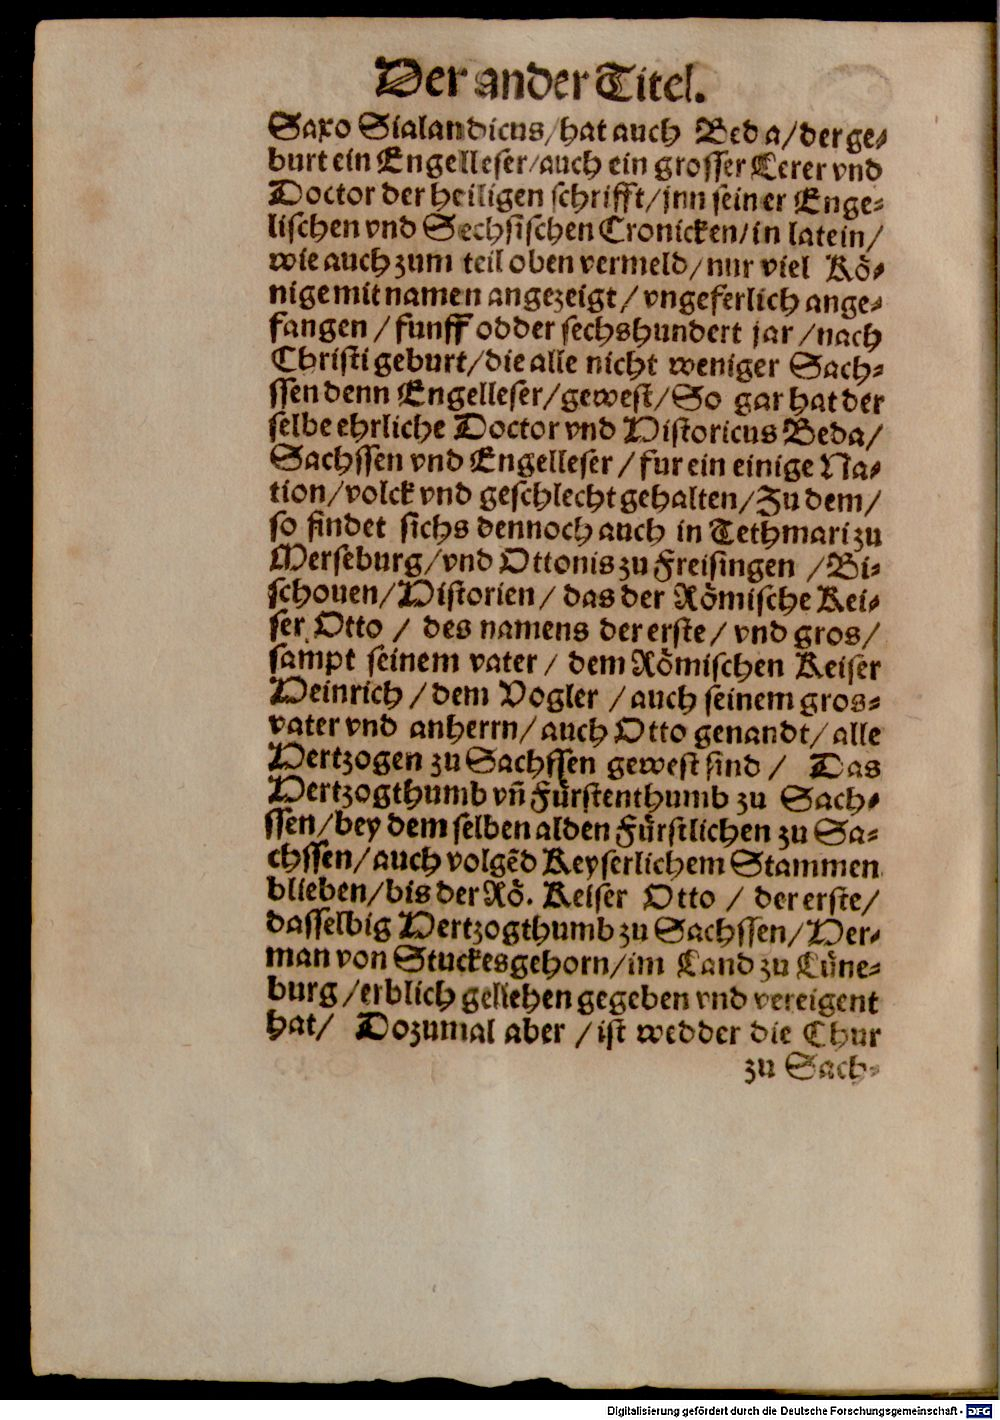 Der ander Titel.
Saxo Sialandicus/hat auch Beda/der ge-
burt ein Engelleser/auch ein grosser Lerer vnd
Doctor der heiligen schrifft/jnn seiner Enge-
lischen vnd Sechsischen Cronicken/in latein/
wie auch zum teil oben vermeld/nur viel Kö-
nige mit namen angezeigt/vngeferlich ange-
fangen/funff odder sechshundert jar/nach
Christi geburt/die alle nicht weniger Sach-
ssen denn Engelleser/gewest/So gar hat der
selbe ehrliche Doctor vnd Historicus Beda/
Sachssen vnd Engelleser/fur ein einige Na-
tion/volck vnd geschlecht gehalten/Zu dem/
so findet sichs dennoch auch in Tethmari zu
Merseburg/vnd Ottonis zu Freisingen/Bi-
schouen/Historien/das der Römische Kei-
ser Otto/des namens der erste/vnd gros/
sampt seinem vater/dem Römischen Keiser
Heinrich/dem Vogler/auch seinem gros-
vater vnd anherrn/auch Otto genandt/alle
Hertzogen zu Sachssen gewest sind/Das
Hertzogthumb vñ Fürstenthumb zu Sach-
ssen/bey dem selben alden Fürstlichen zu Sa-
chssen/auch volgẽd Keyserlichem Stammen
blieben/bis der Rö. Keiser Otto/der erste/
dasselbig Hertzogthumb zu Sachssen/Her-
man von Stuckesgehorn/im Land zu Lüne-
burg/erblich geliehen gegeben vnd vereigent
hat/Dozumal aber/ist wedder die Chur
zu Sach-
Digitalisierung gefördert durch die Deutsche Forschungsgemeinschaft - DFG